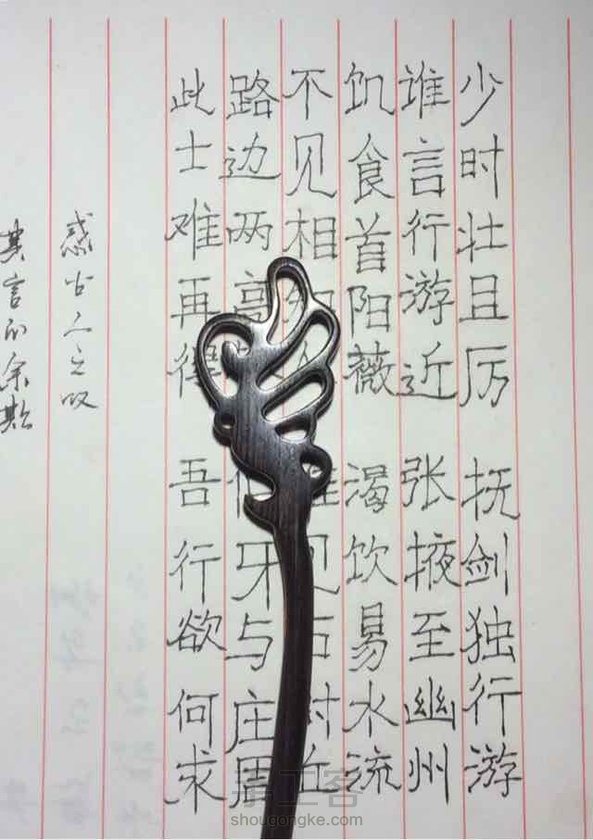 少时壮且厉 抚剑独行游
谁言行游近 张掖至幽州
饥食首阳薇 渴饮易水流
不见相
路边两高 牙与庄周
此士难再得 吾行欲何求
感古人之叹
其言 余欺
手工客
shougongke.com